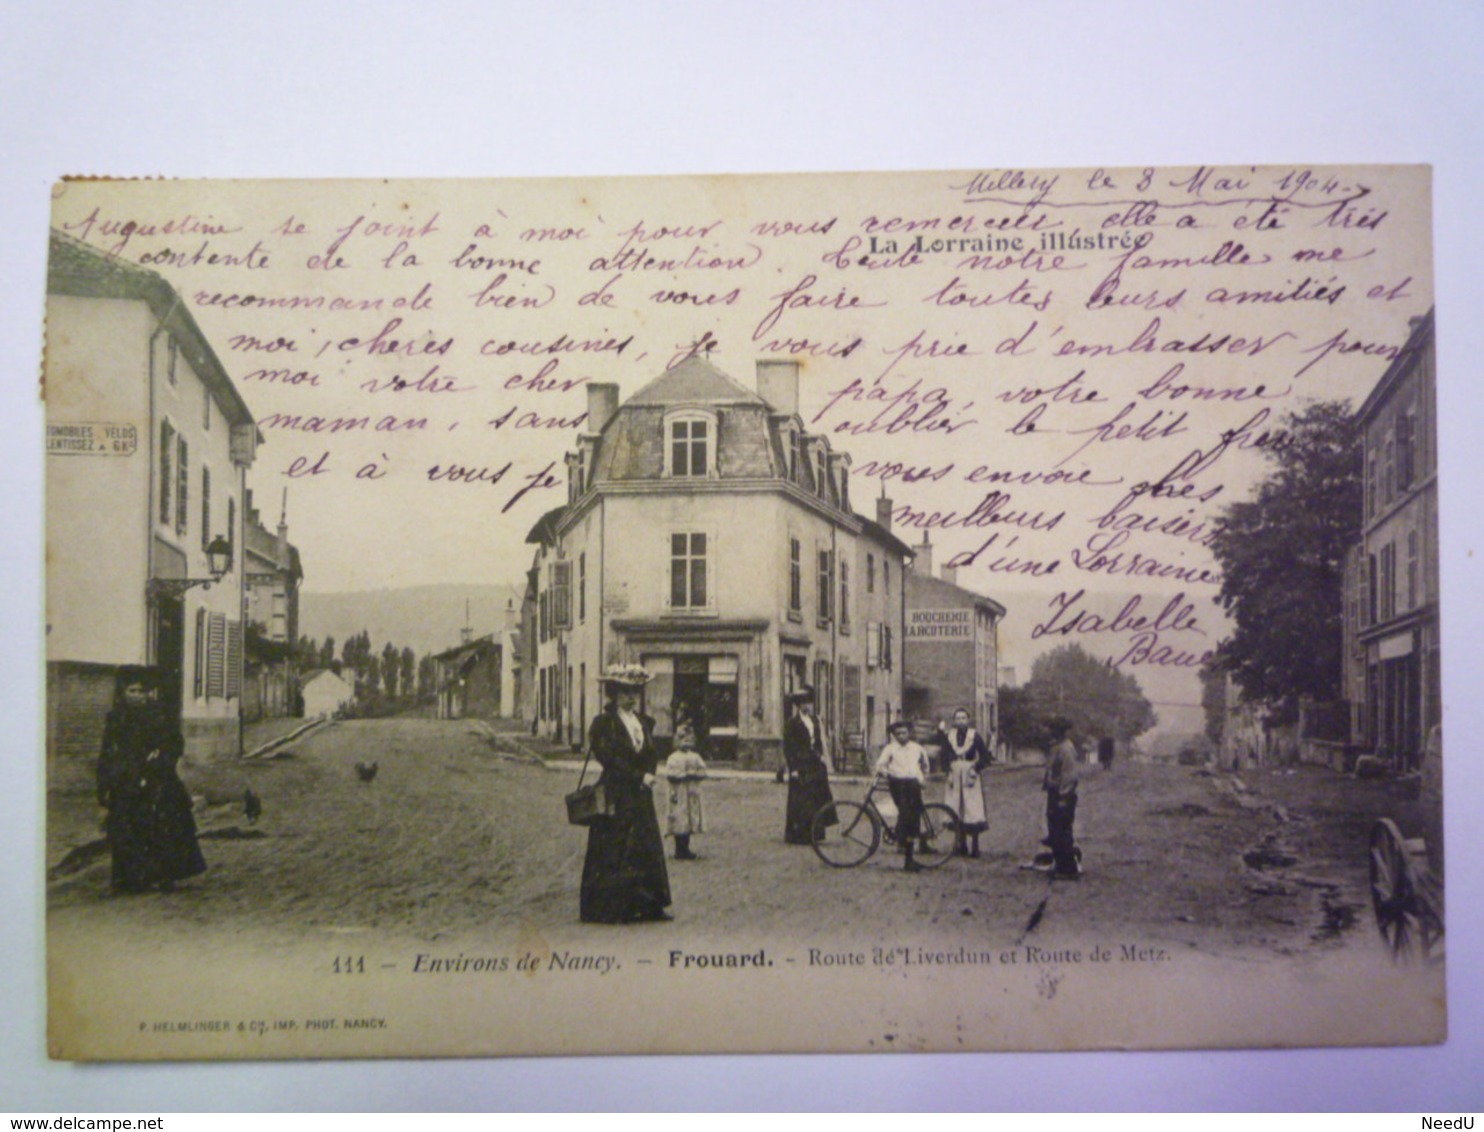 Millery le 8 Mai 1904
Augustine se joint à moi pour vous remercier elle a été très
La Lorraine illustrée
contente de la bonne attention. Toute notre famille me
recommande bien de vous faire toutes leurs amitiés et
moi, cheres cousines, je vous prie d'embrasser pour
moi votre cher papa, votre bonne
maman, sans oublier le petit frere
et à vous je vous envoie mes
meilleurs baisers
d'une Lorraine
Isabelle
TOMOBILES VELOS
LENTISSEZ
BOUCHERIE
HARCUTERIE
111 - Environs de Nancy. - Frouard. - Route de Liverdun et Route de Metz.
P. HELMLINGER & Cie, IMP. PHOT. NANCY.
delcampe.net
NeedU